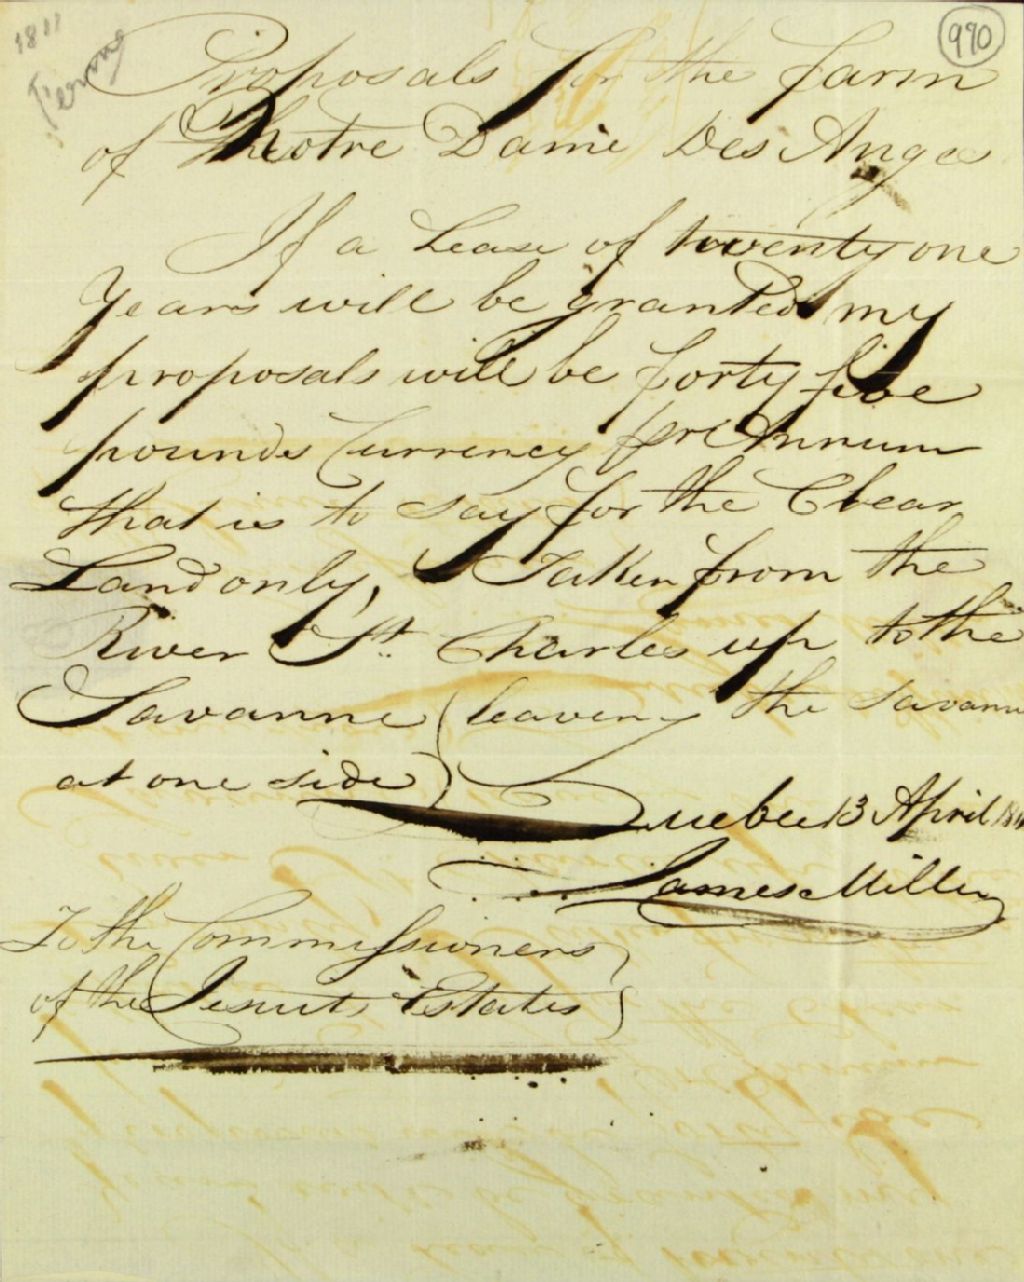 1811
Ferme
990
Proposals for the farm
of Notre Dame Des Anges
If a Lease of twenty one
Years will be granted my
proposals will be forty five
pounds Currency pr Annum
that is to say for the Clear
Land only, Taken from the
River St Charles up to the
Savanne (leaveng the Savanne
at one side)
Quebec 13 April 1811
James Miller
To the Commissioners
of the Jesuits Estates